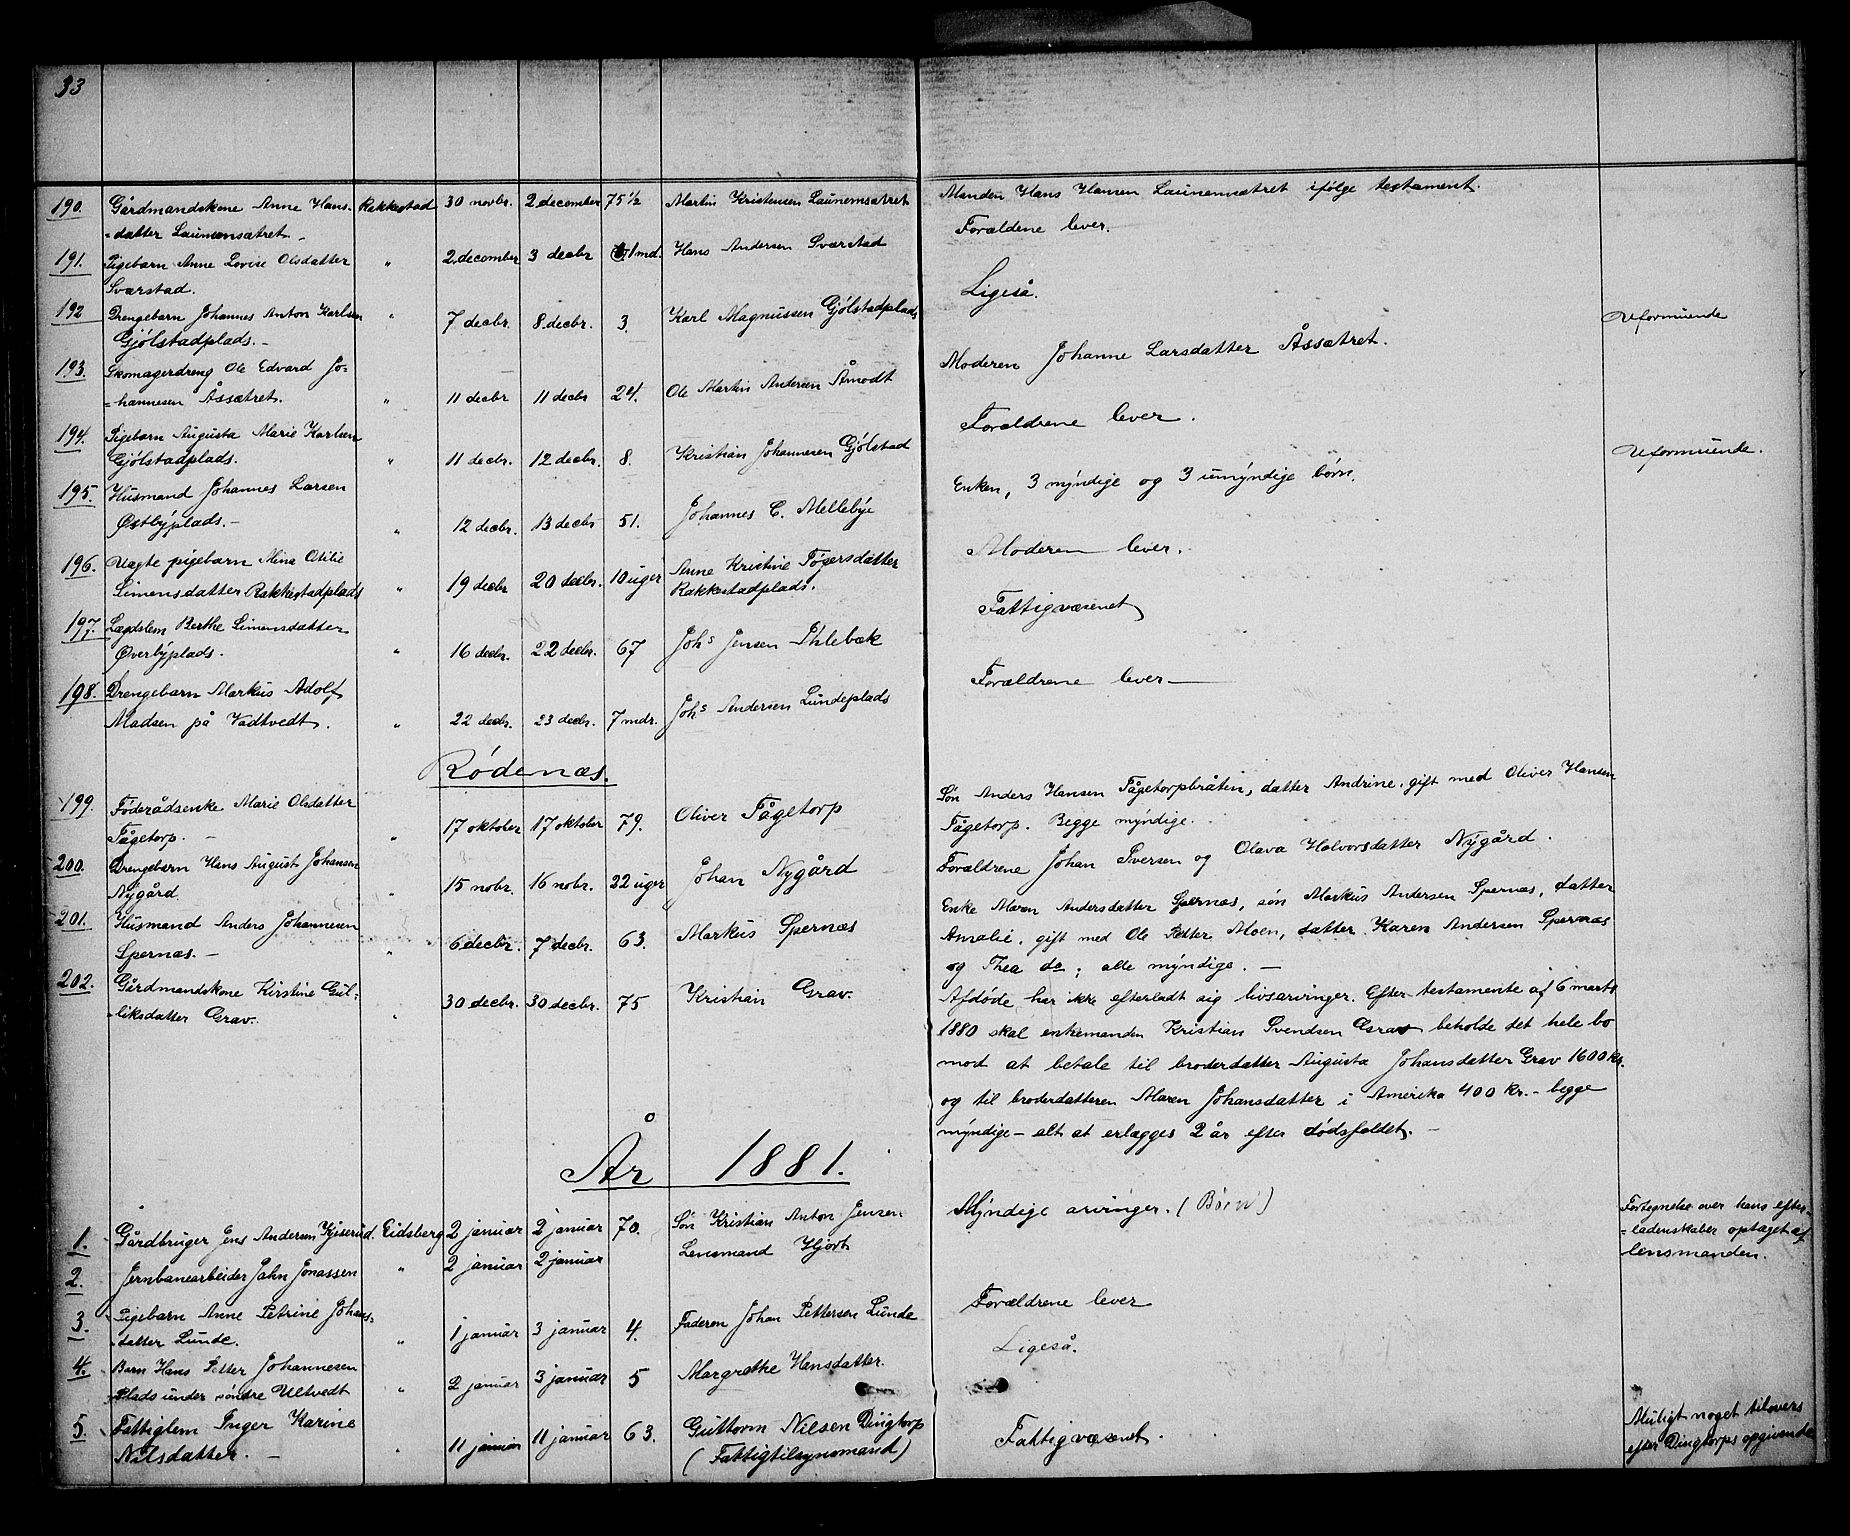 33
190. Gårdmandskone Anne Hans- Rakkestad 30 novbr. 2 december 75 1/2 Martin Kristensen Launemsætret Manden Hans Hansen Launemsætret ifølge testament.
=datter Launemsætret - Forældene lever.
191. Pigebarn Anne Lovise Olsdatter " 2 december 3 decbr 1 md. Hans Andersen Sværstad
Sværstad. Ligeså.
192 Drengebarn Johannes Anton Karlsen " 7 decbr. 8 decbr. 3. Karl Magnussen Gjølstadplads Uformuende
Gjølstadplads. -
193. Skomagerdreng Ole Edvard Jo- Moderen Johanne Larsdatter Åssætret.
=hannesen Åssætret. " 11 decbr 11 decbr 24. Ole Martin Andersen Åmodt
194. Pigebarn Augusta Marie Karlsen Forældrene lever.
Gjølstadplads. " 11 decbr. 12 decbr. 8. Kristian Johannesen Gjølstad Uformuende.
195. Husmand Johannes Larsen Enken, 3 myndige og 3 umyndige børn.
Østbyplads. - " 12 decbr. 13 decbr 51. Johannes C. Mellebye
196. Uægte pigebarn Mina Otilie Moderen lever.
Simensdatter Rakkestadplads " 19 decbr 20 decbr. 10 uger Anne Kristine Tøgersdatter
Rakkestadplads.
197. Lægdslem Berthe Simensdatter Fattigvæsenet
Øverbyplads. " 16 decbr. 22 decbr. 67 Johs Jensen Ihlebæk
198. Drengebarn Markus Adolf Forældrene lever -
Madsen på Vadtvedt. " 22 decbr. 23 decbr. 7 mdr. Johs Andersen Lundeplads
Rødenæs.
199. Føderådsenke Marie Olsdatter Søn Anders Hansen Tågetorpbråten, datter Andrine, gift med Oliver Hansen
Tågetorp. - " 17 oktober 17 oktober 79. Oliver Tågetorp Tågetorp. Begge myndige.
200. Drengebarn Hans August Johansen Forældrene Johan Iversen og Olava Halvorsdatter Nygård.
Nygård. " 15 nobr. 16 nobr. 22 uger Johan Nygård
201. Husmand Anders Johannesen Enke Maren Andersdatter Spernæs, søn Markus Andersen Spernæs, datter
Spernæs. - " 6 decbr. 7 decbr. 63. Markus Spernæs Amalie, gift med Ole Petter Moen, datter Karen Andersen Spernæs
og Thea do; alle myndige. -
202. Gårdmandskone Kirstine Gul- Afdøde har ikke efterladt sig livsarvinger. Efter testamente af 6 marts
=liksdatter Grav. " 30 decbr. 30 decbr. 75 Kristian Grav. 1880 skal enkemanden Kristian Svendsen Grav beholde det hele bo
mod at betale til broderdatter Augusta Johansdatter Grav 1600 kr.
og til broderdatteren Maren Johansdatter i Amerika 400 kr. - begge
myndige - alt at erlægges 2 år efter dødsfaldet. -
År 1881.
1. Gårdbruger Jens Andersen Kjserud Eidsberg 2 januar 2 januar 70. Søn Kristian Anton Jensen Myndige arvinger. (Børn) Fortegnelse over hans efter-
=ladenskaber optaget af
lensmanden.
2. Jernbanearbeider Jahn Jonassen " 2 januar 2 januar Lensmand Hjorth
3. Pigebarn Anne Petrine Johans- Forældrene lever
=datter Lunde. " 1 januar 3 januar 4. Faderen Johan Pettersen Lunde
4. Barn Hans Petter Johannesen Ligeså.
Plads under søndre Ultvedt " 2 januar 3 januar 5 Margrethe Hansdatter.
5. Fattiglem Inger Karine " 11 januar 11 januar 63. Guttorm Nilsen Dingtorp Fattigvæsenet. Muligt noget tilovers
Nilsdatter. - (Fattigtilsynsmand) efter Dingtorps opgivende